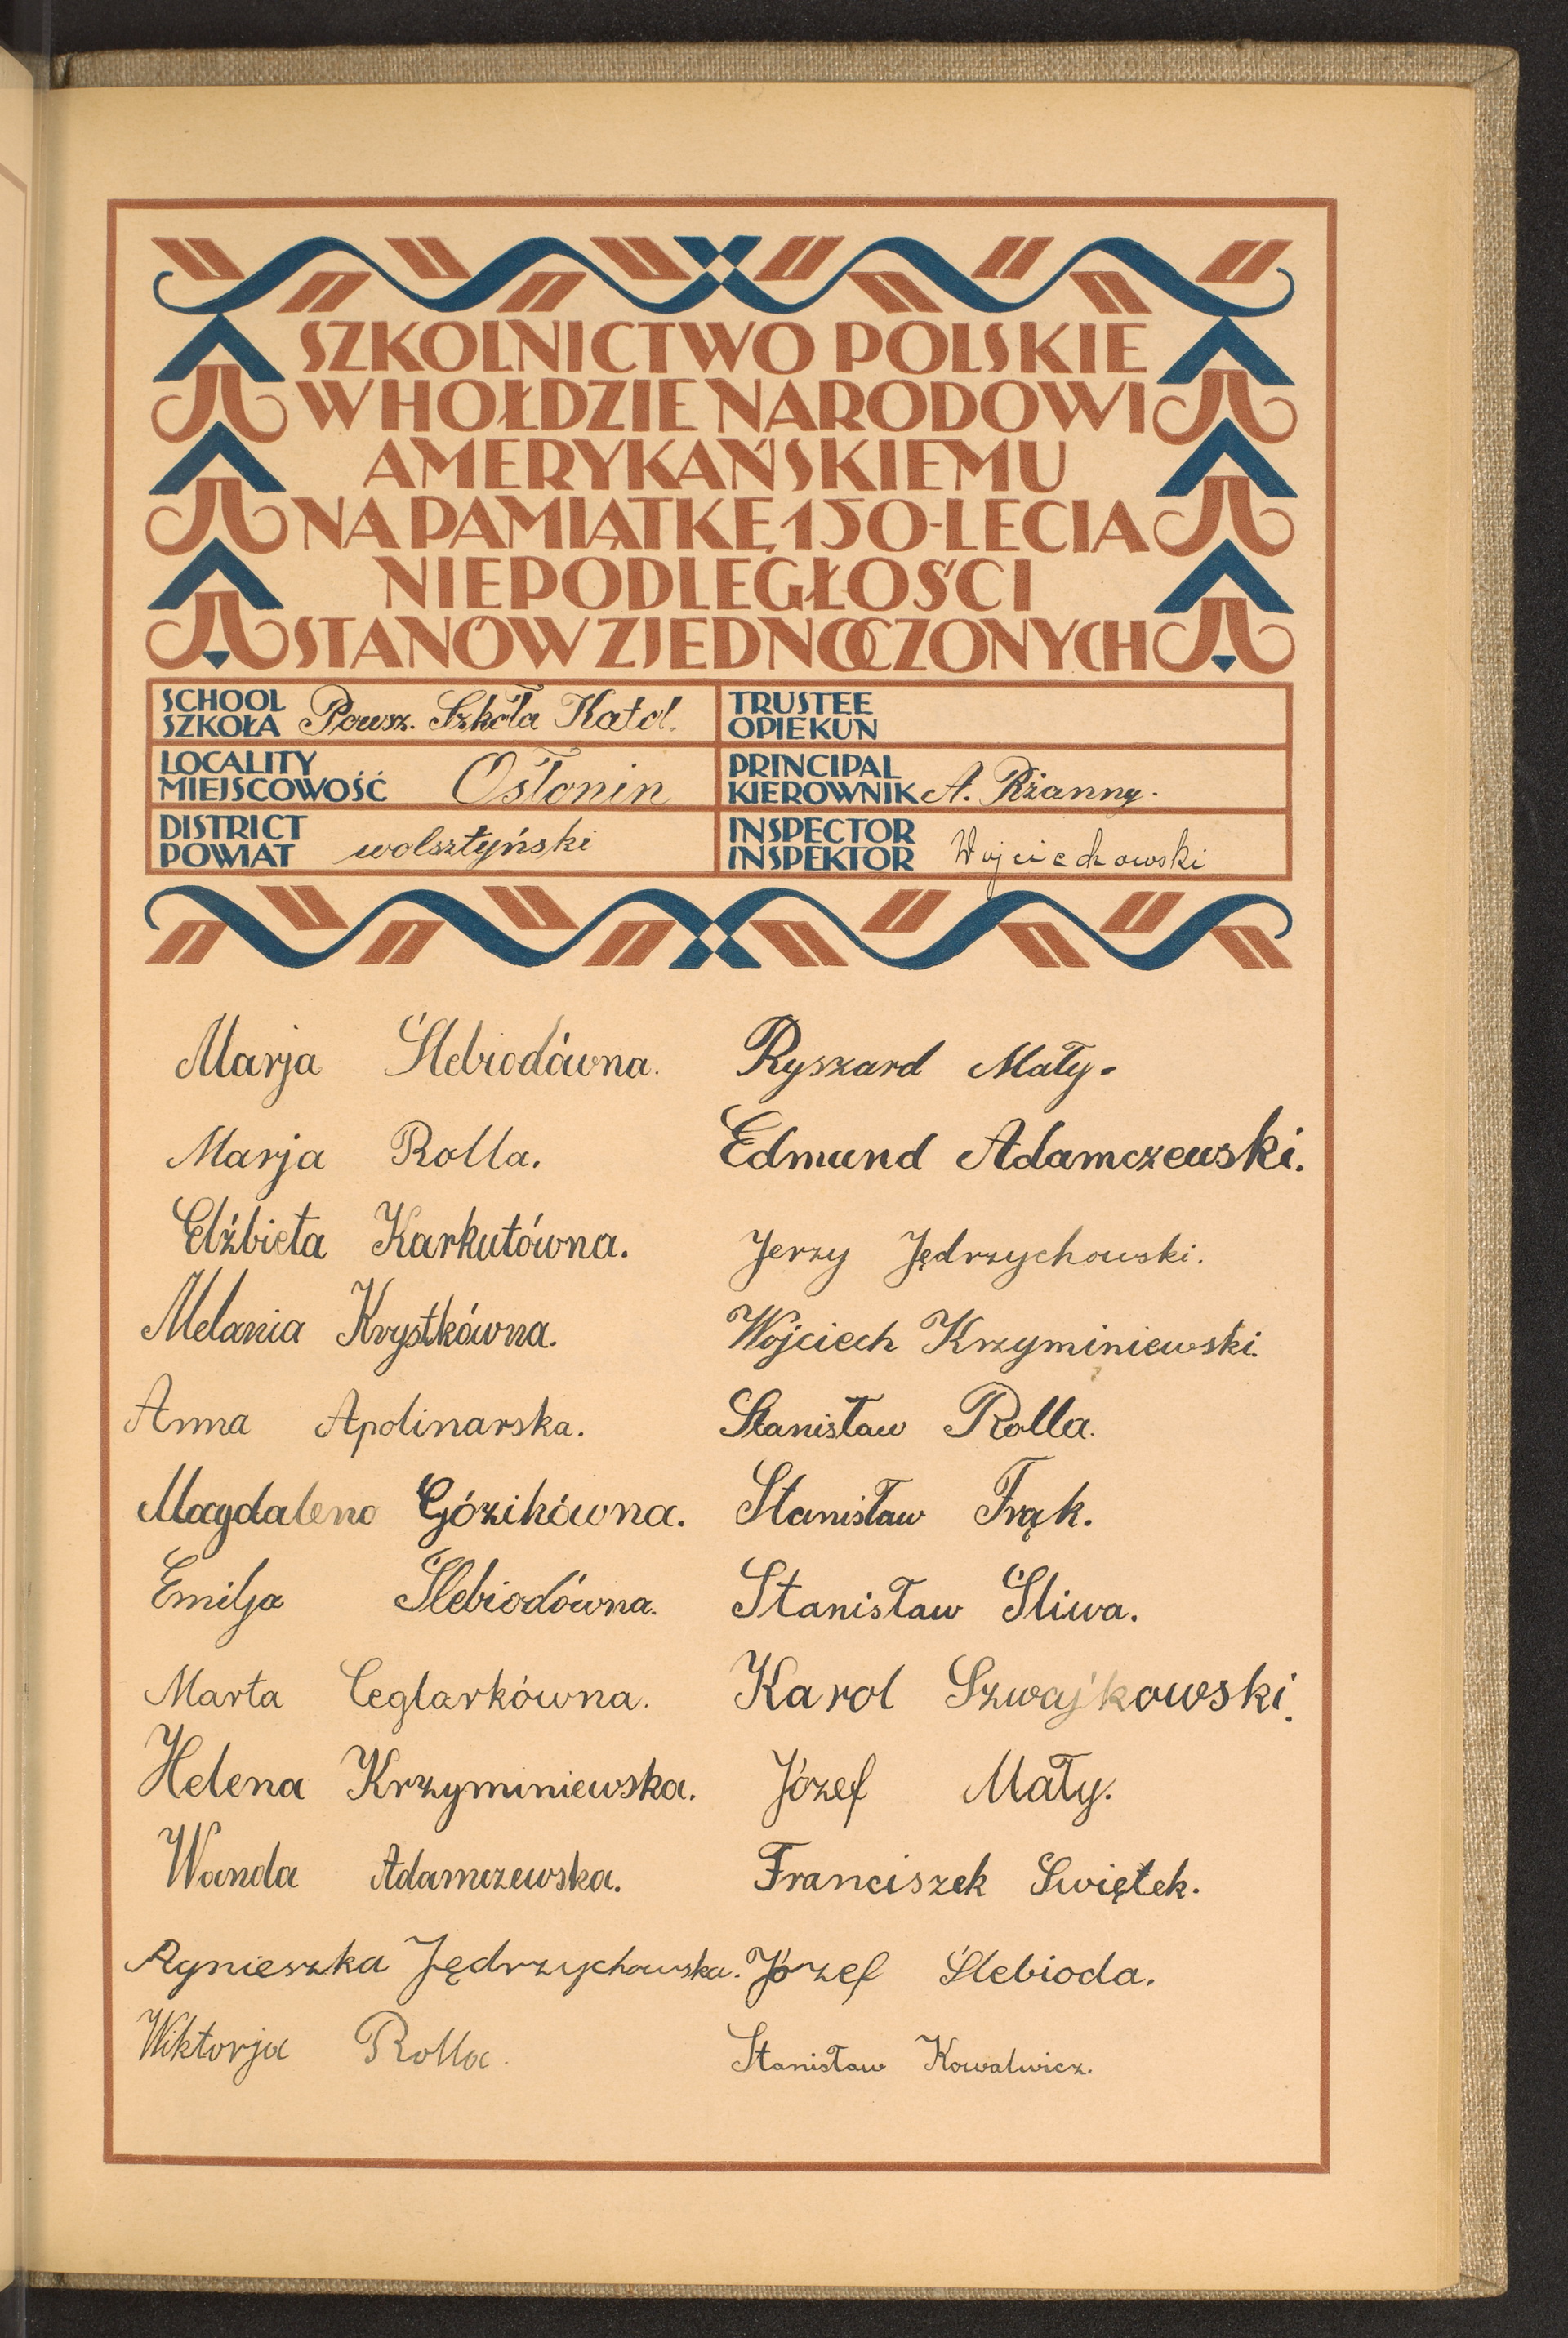 SZKOLNICTWO POLSKIE
W HOŁDZIE NARODOWI
AMERYKAŃSKIEMU
NA PAMIĄTKĘ 150-LECIA
NIEPODLEGŁOŚCI
STANÓW ZJEDNOCZONYCH
SCHOOL
SZKOŁA Powsz. Szkoła Katol.
TRUSTEE
OPIEKUN
LOCALITY
MIEJSCOWOŚĆ Osłonin
PRINCIPAL
KIEROWNIK A. Rżanny.
DISTRICT
POWIAT wolsztyński
INSPECTOR
INSPEKTOR Wojciechowski
Marja Ślebiodówna.
Marja Rolla.
Elżbieta Karkutówna.
Melania Krystkówna.
Anna Apolinarska.
Magdalena Górzikówna.
Emilja Ślebiodówna.
Marta Ceglarkówna.
Helena Krzyminiewska.
Wanda Adamczewska.
Agnieszka Jędrzychowska.
Wiktorja Rolla.
Ryszard Mały.
Edmund Adamczewski.
Jerzy Jędrzychowski.
Wojciech Krzyminiewski.
Stanisław Rolla.
Stanisław Frąk.
Stanisław Śliwa.
Karol Szwajkowski.
Józef Mały.
Franciszek Swiętek.
Józef Ślebioda.
Stanisław Kowalwicz.